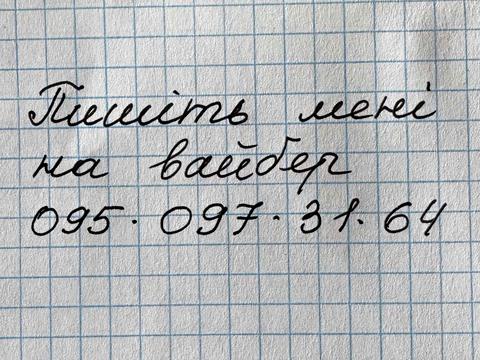 Пишіть мені
на вайбер
095. 097. 31. 64